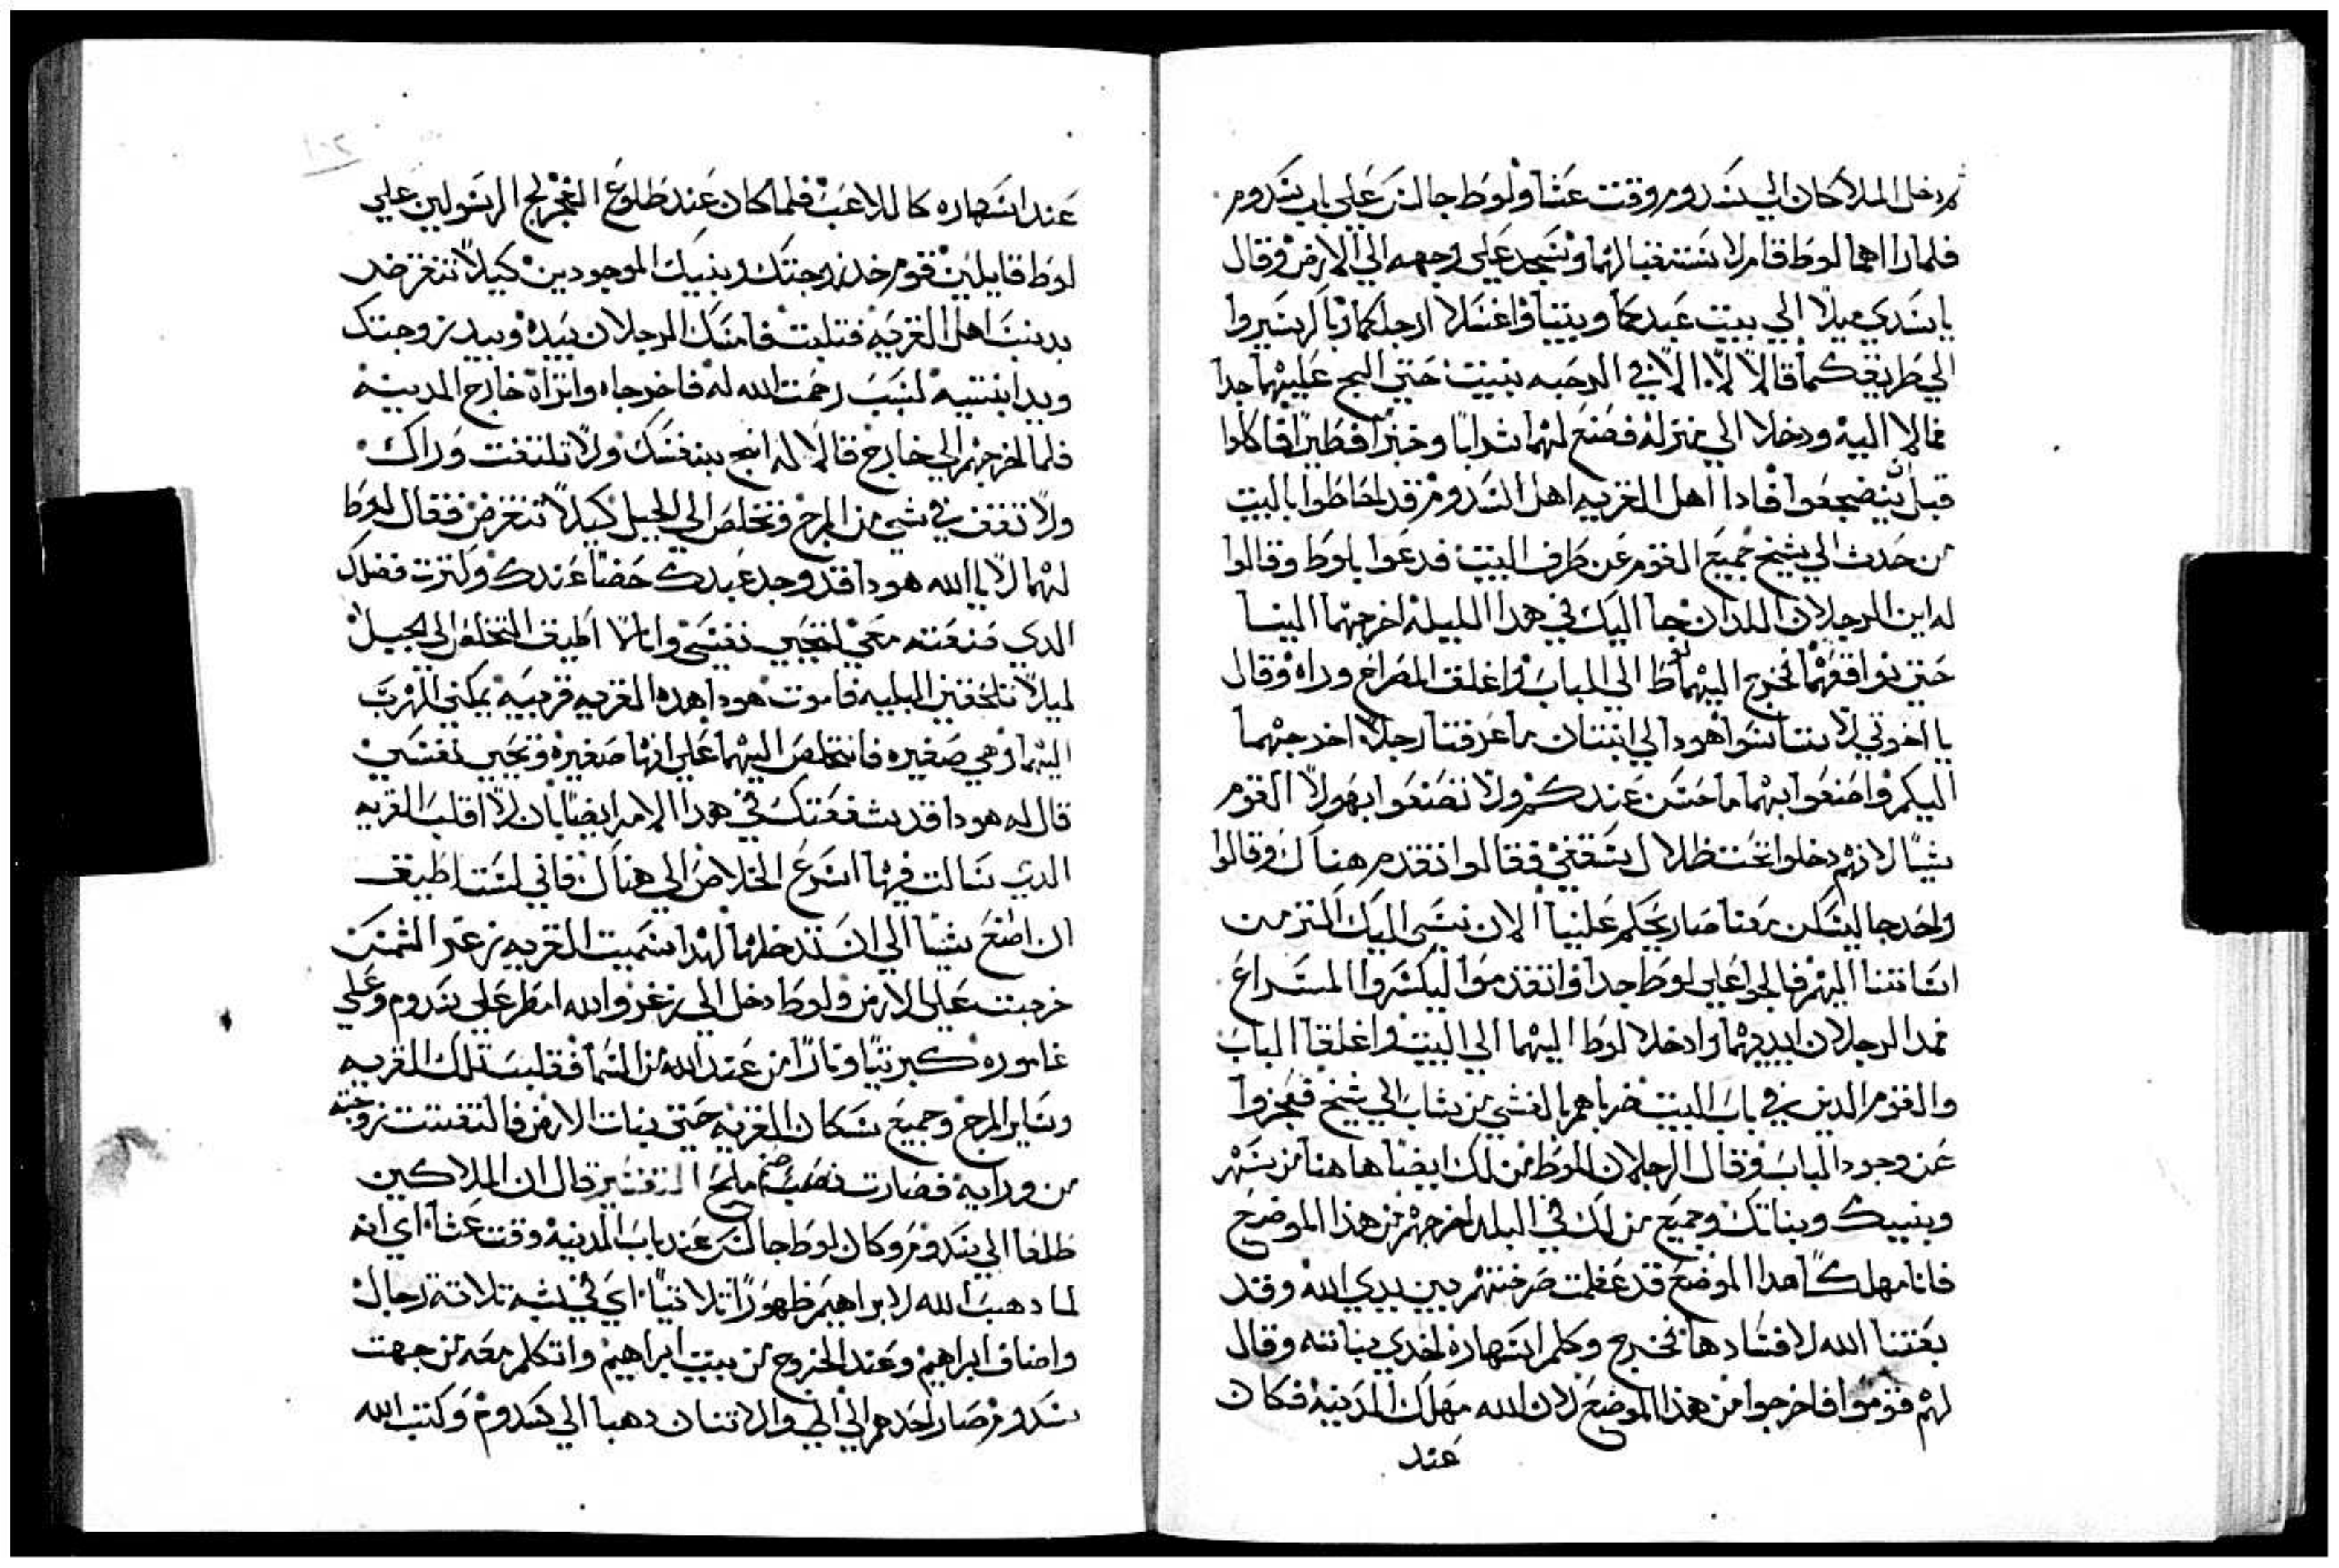 ثم دخل الملاكان الي سدوم وقت عشا ولوط جالس علي باب سدوم
فلما راهما لوط قام لاستقبالهما وسجد علي وجهه الي الارض وقال
يا سيدي ميلا الي بيت عبدكما وبيتا واغسلا ارجلكما وباكر سيروا
الي طريقكما قالا لا الا في الرحبه نبيت حتي الج عليهما جدا
فمالا اليه ودخلا الي منزله فصنع لهما شرابا وخبزا فطيرا فاكلوا
قبل ان ينضجعوا فادا اهل القريه اهل السدوم قد احاطوا بالبيت
من حدث الي شيخ جميع القوم عن طرف البيت فدعوا بلوط وقالوا
له اين الرجلان اللدان جا اليك في هدا الليله اخرجهما الينا
حتي نواقعهما فخرج اليهما لوط الي الباب واغلق المصراع وراه وقال
يا اخوتي لا هودا لي ابنتان ما عرفتا رجلا اخرجهما
اليكم واصنعوا بهما ما حسن عندكم ولا تصنعوا بهولا القوم
شيا لانهم دخلوا تحت ظلال سقفي فقالوا تقدم هناك وقالوا
واحد جا ليسكن معنا صار يحكم علينا الان نسي اليك اكتر من
اساتنا اليهم فالجوا علي لوط جدا واتقدموا ليكسروا المسراع
فمد الرجلان ايديهما وادخلا لوط اليهما الي البيت واغلقا الباب
والقوم الدين في باب البيت ضرباهم بالغشي من شاب الي شيخ فعجزوا
عن وجود الباب وقال الرجلان للوط من لك ايضا هاهنا من سهر
وبنيك وبناتك وجميع من لك في البلد اخرجهم من هذا الموضع
فانا مهلكا هدا الموضع قد عظمت صرختهم بين يدي الله وقد
بعتنا الله لافسادها فخرج وكلم اسهاره اخدي بناته وقال
لهم قوموا فاخرجوا من هذا الموضع لان الله مهلك المدينه فكان
عند
عند اسهاره كاللاعب فلما كان عند طلوع الفجر الج الرسولين علي
لوط قايلين قوم خد زوجتك وبنيك الموجودين كيلا تنغرض
بدنب اهل القريه فتلبت فامسك الرجلان بيده وبيد زوجتك
ويد ابنتيه لسبب رحمت الله له فاخرجاه وانزلاه خارج المدينه
فلما اخرجهم الي خارج قالا له انج بنفسك ولا تلتفت وراك
ولا تقف في شي من المرج وتخلص الي الجبل كيلا تنغرض فقال لوط
لهما لا يا الله هودا قد وجد عبدك حضا عندك وكترت فضلك
الدي صنعته معي لتحيي نفسي وانا لا اطيق التخلص الي الجبل
ليلا تلحقني البليه فاموت هودا هده القريه قريبه يمكني الهرب
اليها وهي صغيره فانخلص اليها علي انها صغيره وتحيي نفسي
قال له هودا قد شفعتك في هدا الامر ايضا بان لا اقلب القريه
الدي سالت فيها اسرع الخلاص الي هناك فاني لست اطيق
ان اصنع شيا الي ان تدخلها لهدا سميت القريه زغر الشمس
خرجت علي الارض ولوط دخل الي زغر والله امطر علي سدوم وعلي
غاموره كبريتا ونارا من عند الله من السما فقلب تلك القريه
وساير المرج وجميع سكان القريه حتي نبات الارض فالتفتت زوجته
من ورايه فصارت نصب صنم ملح التفسير قال ان الملاكين
طلعا الي سدوم وكان لوط جالس عند باب المدينه وقت عشا اي انه
لما دهب الله لابراهيم ظهورا تلاتيا اي في شبه تلاتة رجال
واضاف ابراهيم وعند الخروج من بيت ابراهيم واتكلم معه من جهت
سدوم صار احدهم الي الجو والاتنان دهبا الي سدوم وكتب الله